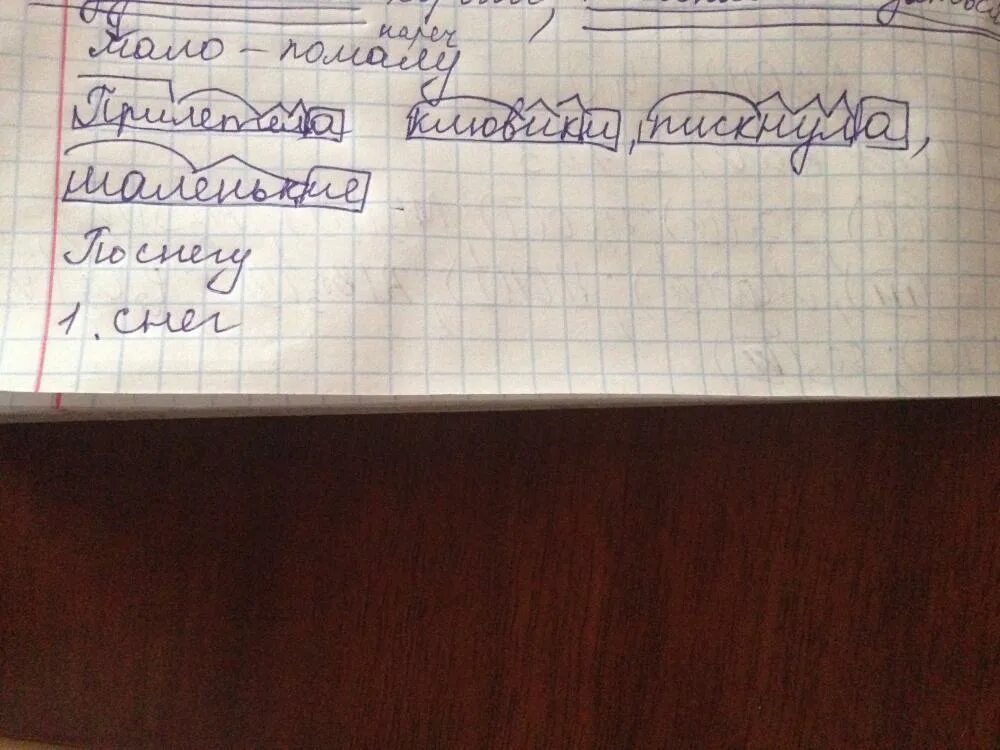 нареч
мало - помалу
Прилетела клювики, пискнула,
маленькие
По снегу
1. снег